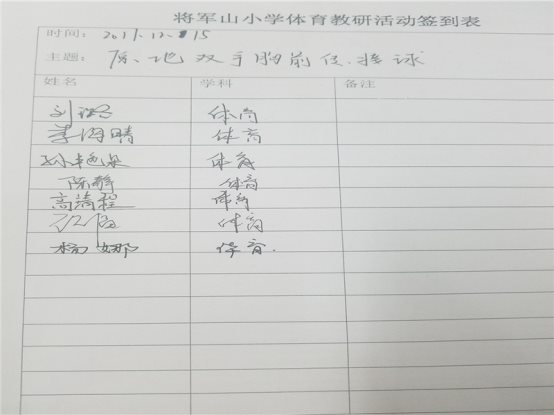 将军山小学体育教研活动签到表
时间: 2017.12.15
主题: 原地双手胸前传、接球
姓名 学科 备注
刘 体育
李海晴 体育
孙艳 体育
陈静 体育
高 体育
体育
杨娜 体育.